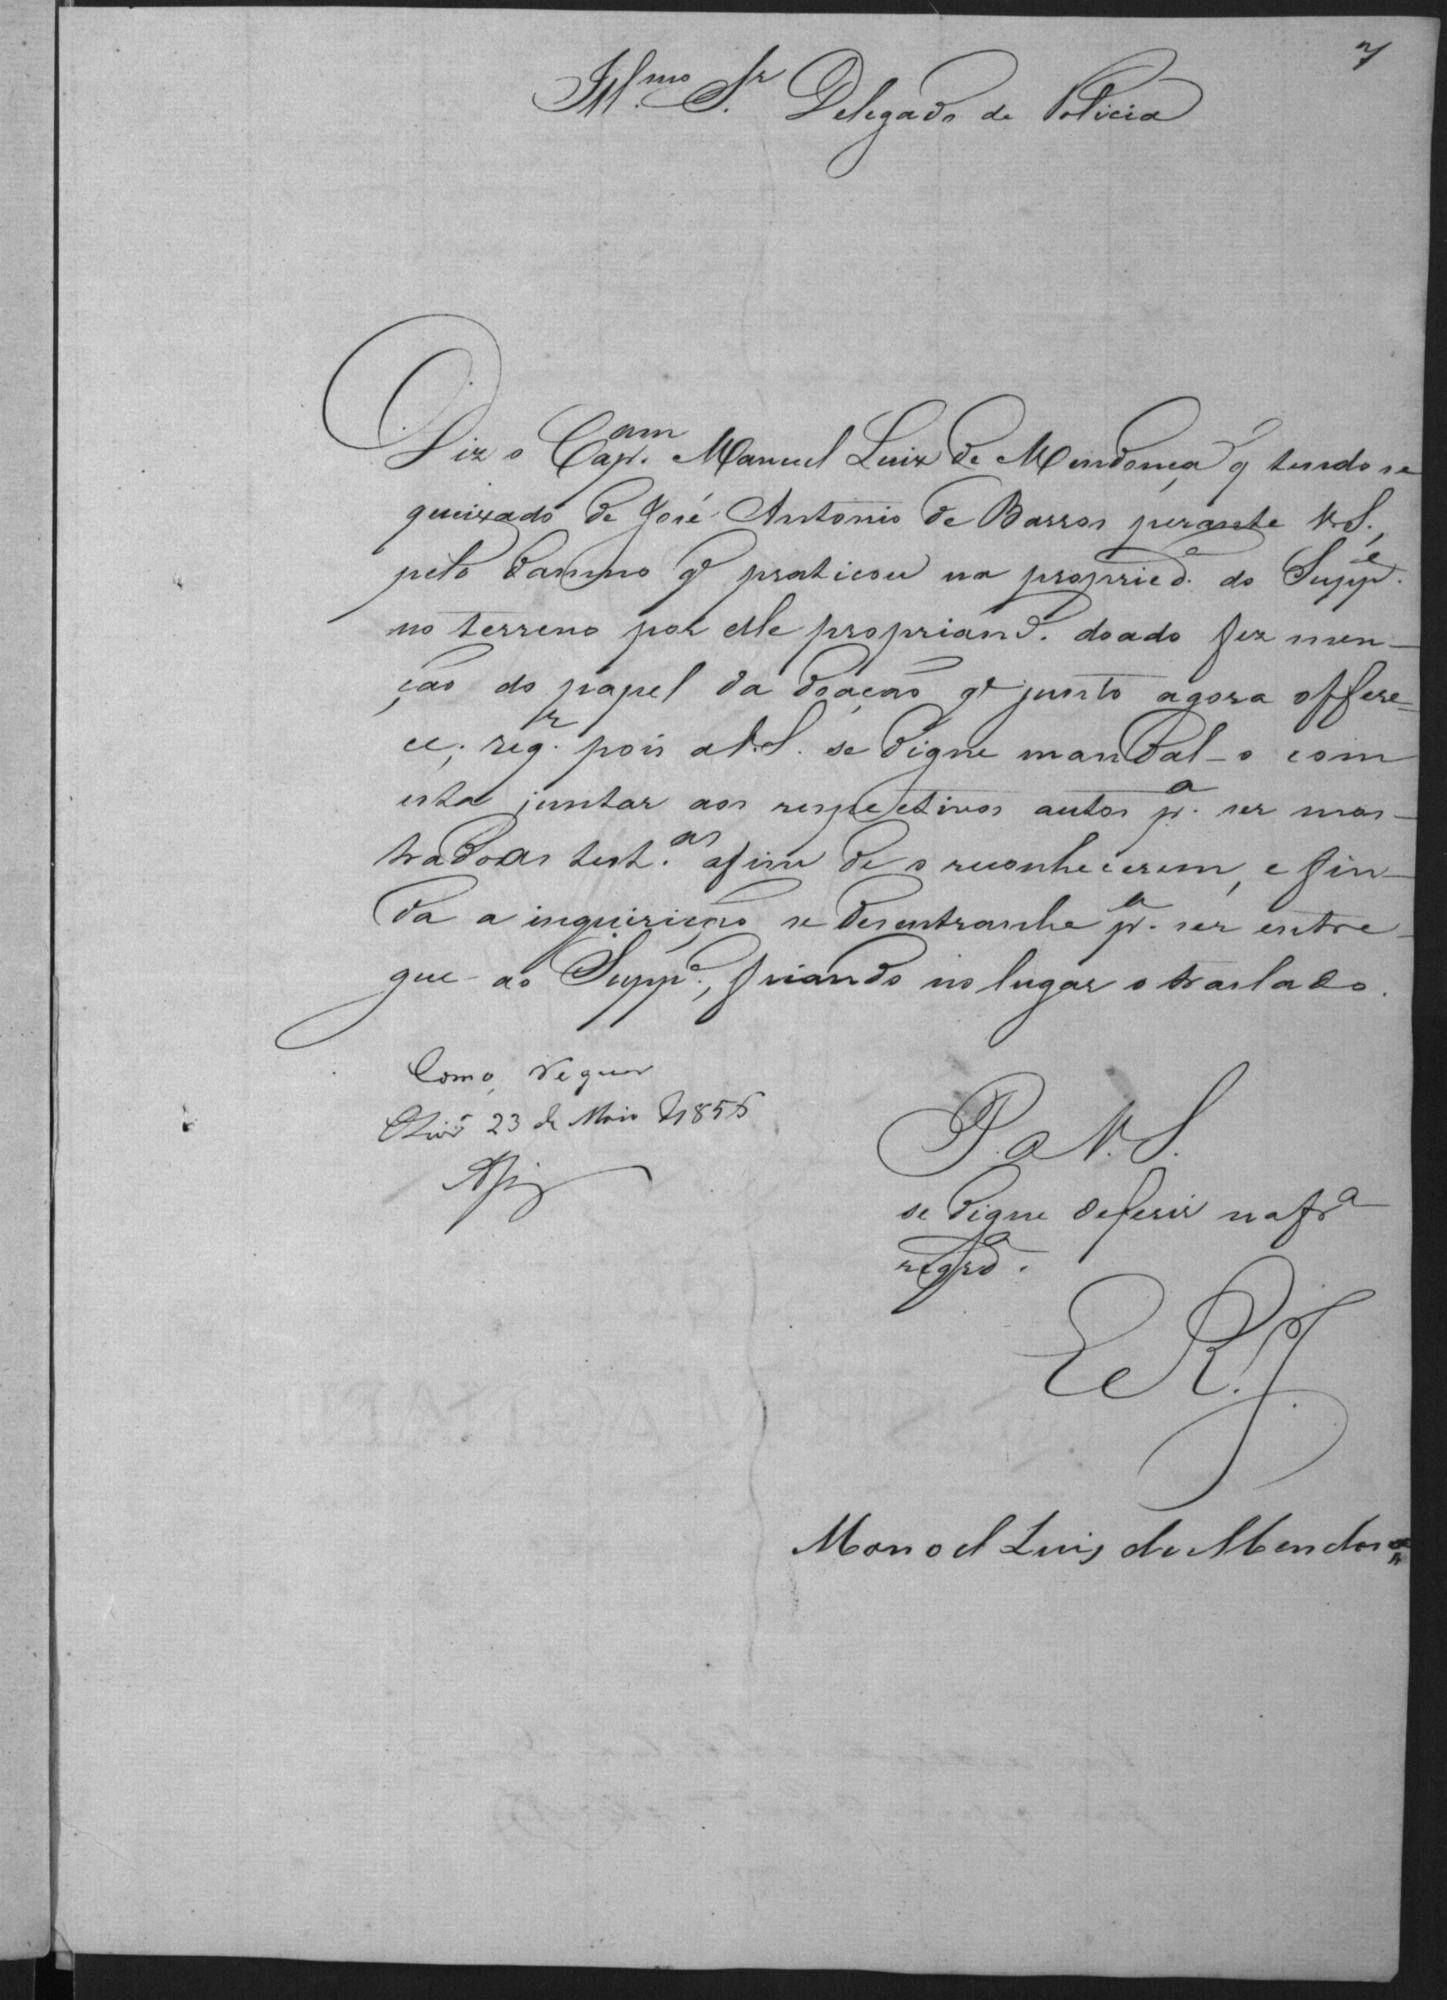 7
Ill.mo Sr. Delegado de Policia
Diz o Cap.am Manuel Luiz de Mendonça q' tendo se
queixado de José Antonio de Barros perante V.S.,
pelo damno q' praticou na propried.e do Supp.e
no terreno por elle propriam.e doado fez men-
ção do papel da doação q' junto agora offere-
ce; req.r pois a V.S. se digne mandal-o com
esta juntar aos respectivos autos p.a ser mos-
trado as test.as afim de o reconhecerem, e fin-
da a inquirição se desentranhe p.a ser entre-
gue ao Supp.e, ficando no lugar o traslado.
Como requer
23 de Maio de 1855
P. a V.S.
se digne deferir na fr.a
reqrd.a
E R. J.
Manoel Luis de Mendonça